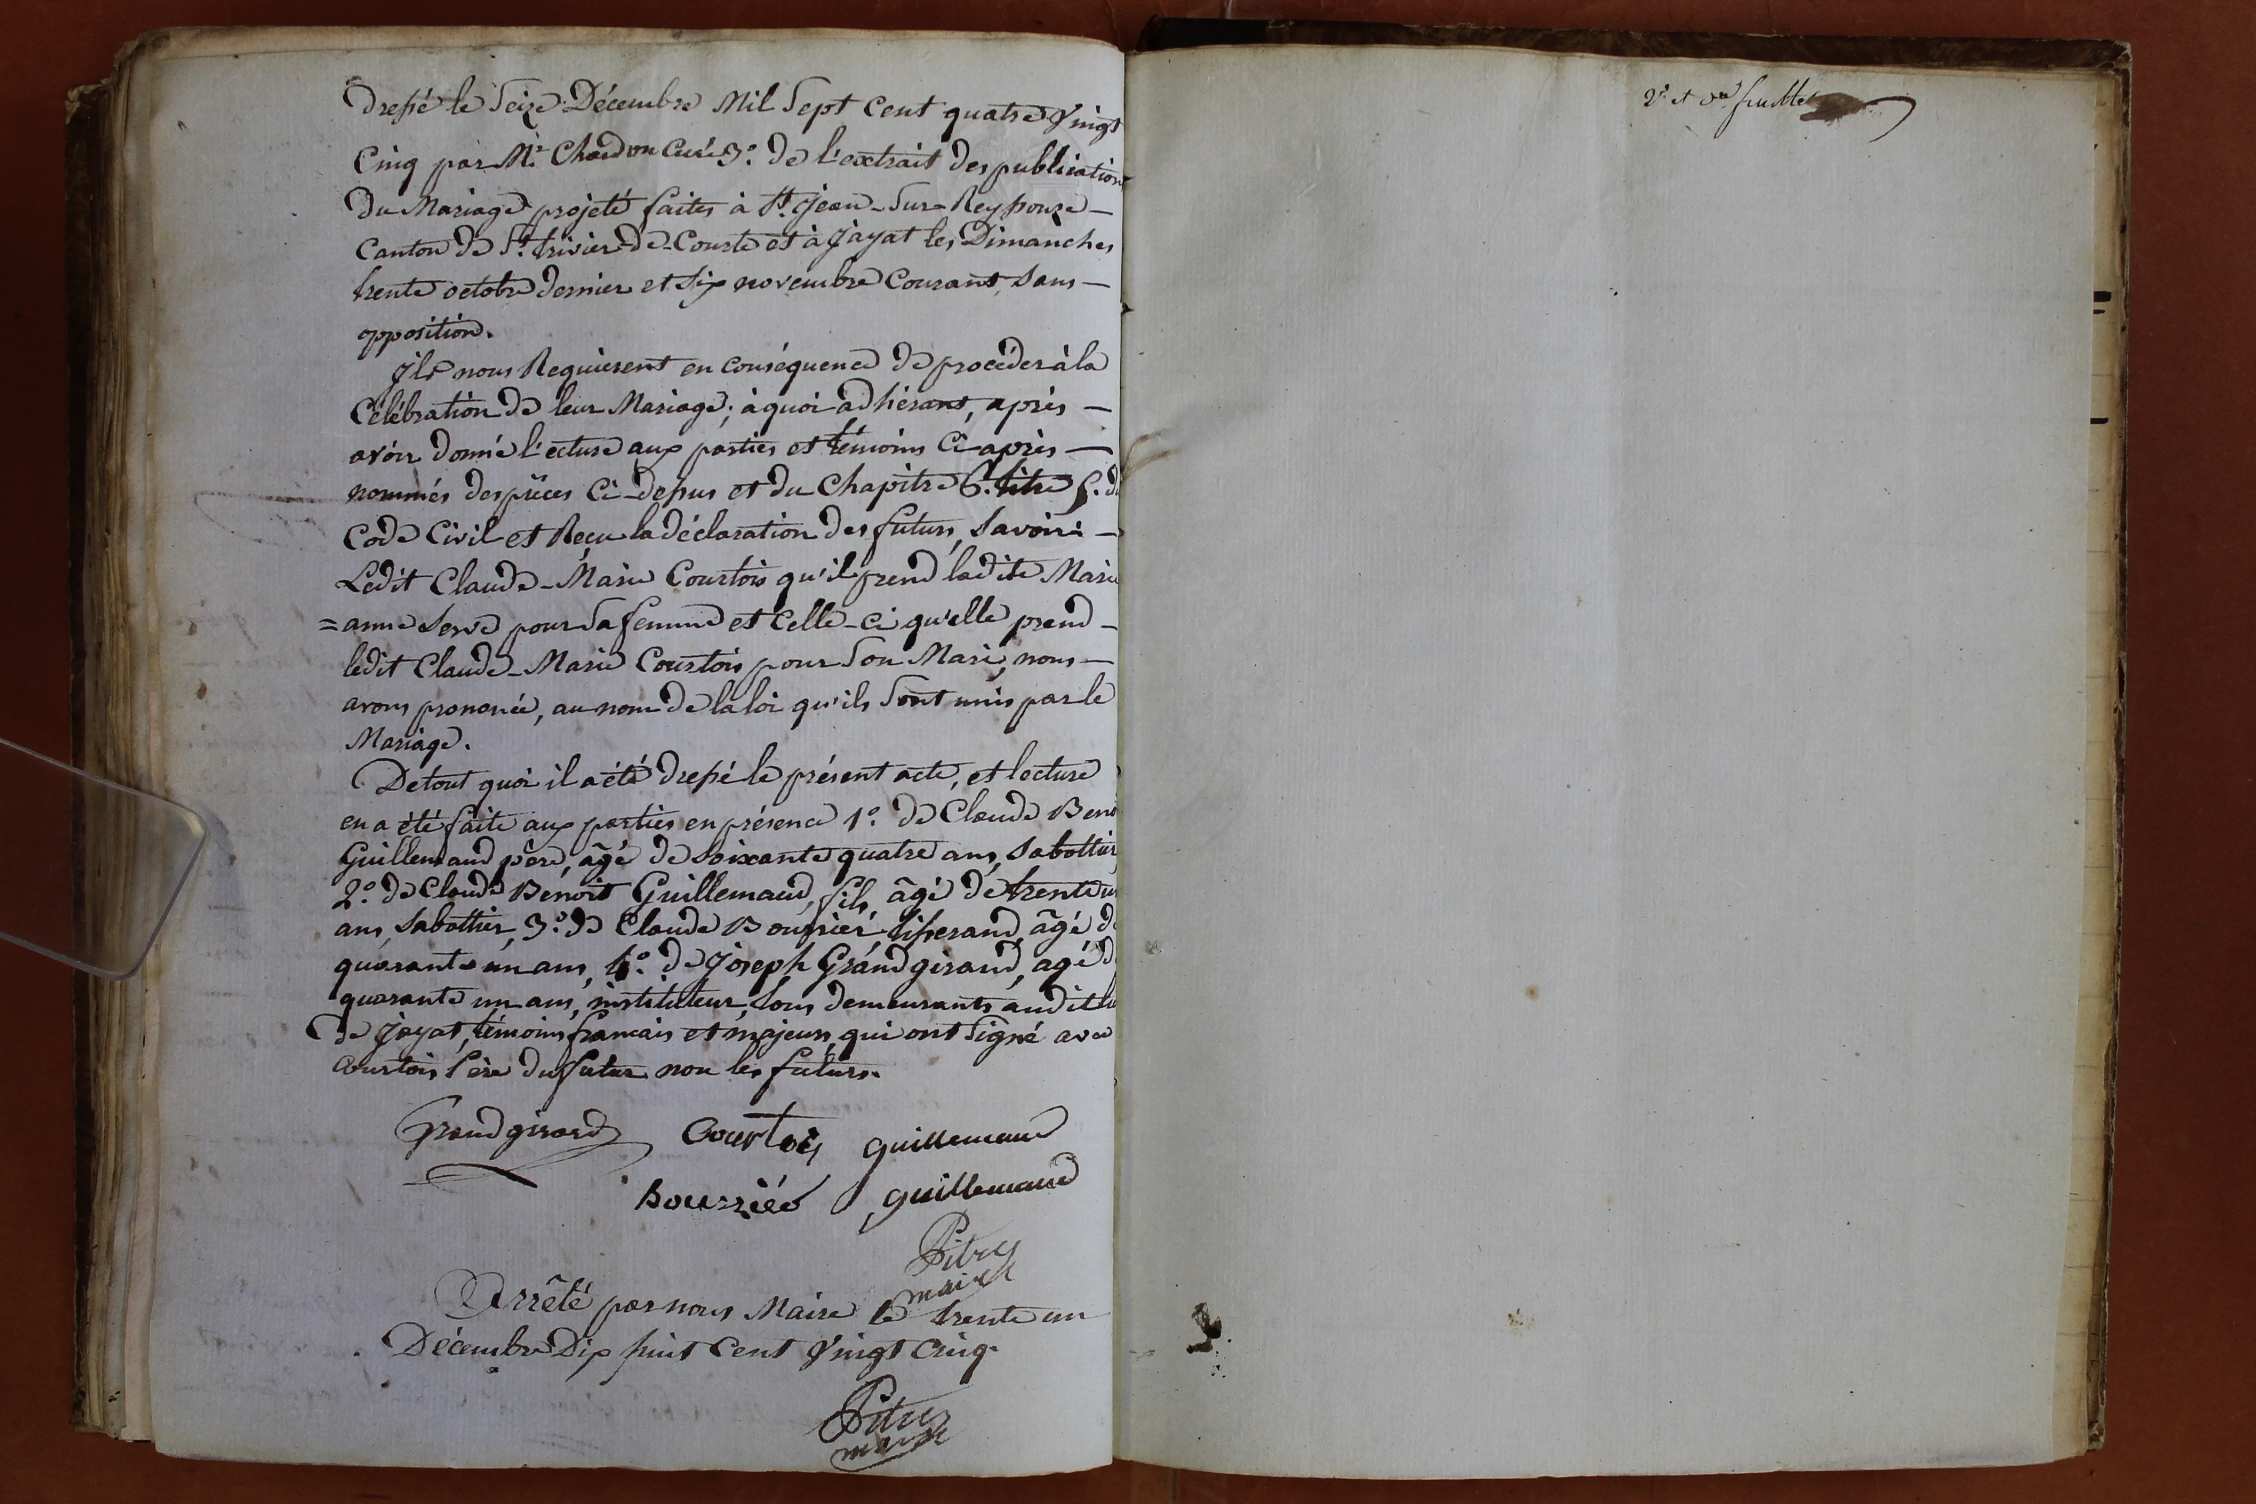 dressé le Seize Décembre Mil Sept cent quatre Vingt
Cinq par Mr. Chardon Curé 3.° de l'extrait des publication
du Mariage projeté faites à St. Jean-Sur-Reyssouze —
Canton de St. trivier-de-Courte et à Jayat les Dimanches
trente octobre dernier et Six novembre Courant, Sans —
opposition.
Ils nous Requierent en conséquence de procéder à la
Célébration de leur Mariage; à quoi adhérant, après —
avoir donné l'ecture aux parties et témoins Ci après —
nommés des pièces Ci-dessus et du Chapitre 6. titre 5. du
Code Civil et Reçu la déclaration des futurs, Savoir: —
Ledit Claude-Marie Courtois qu'il prend ladite Marie
=anne Serve pour Sa femme et Celle-ci qu'elle prend —
ledit Claude-Marie Courtois pour Son Mari, nous —
avons prononcé, au nom de la loi qu'ils Sont unis par le
Mariage.
De tout quoi il a été dressé le présent acte, et lecture
en a été faite aux parties en présence 1.° de Claude Beno
Guillemaud père, âgé de Soixante quatre ans, Sabottier,
2.° de Claude Benoit Guillemaud, fils, âgé de trente un
ans, Sabottier, 3.° de Claude Bourrier, tisserand, âgé de
quarante un ans, 4.° de Joseph Grandgirard, agé de
quarante un ans, instituteur, tous demeurants audit lieu
de Jayat, témoins français et majeurs, qui ont Signé avec
Courtois Père du futur non les futurs.
Grandgirard Courtois Guillemaud
Bourriér Guillemaud
Pitre
maire
Arrêté par nous Maire le trente un
Décembre Dix huit Cent Vingt Cinq.
Pitre
maire
2.e et feuillet